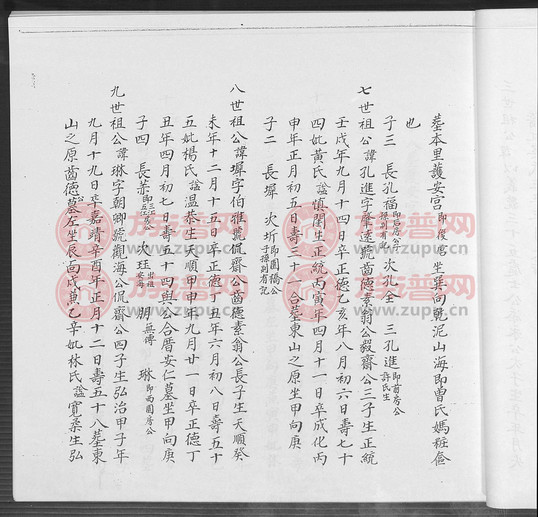 塟本里護安宮即後宮坐巽向乾泥山海即曾氏媽粧奩
也
子三 長孔福即后房公厈譜別有記 次孔全 三孔進即首房公許氏生
七世祖公諱孔進字聲遠號齒德素翁公毅齋公三子生正統
壬戌年九月十四日卒正德乙亥年八月初六日壽七十
四妣黃氏諡慎閨生正統丙寅年四月十一日卒成化丙
申年正月初五日壽三十一合塟東山之原坐甲向庚
子二 長墀 次圻即園橋公子孫別有記
八世祖公諱墀字伯雅號侃齋公齒德素翁公長子生天順癸
未年十二月十五日卒正德丁丑年六月初八日壽五十
五妣楊氏諡溫恭生天順甲申年九月廿一日卒正德丁
丑年四月初七日壽五十四與公合厝安仁墓坐甲向庚
子四 長恭 次珏 朋無傳 琳即西園房公
九世祖公諱琳字朝卿號觀海公侃齋公四子生弘治甲子年
九月十九日卒嘉靖辛酉年正月十二日壽五十八塟東
山之原齒德公墓左坐辰向戌兼乙辛妣林氏諡寬柔生弘
族譜网
zupu.cn